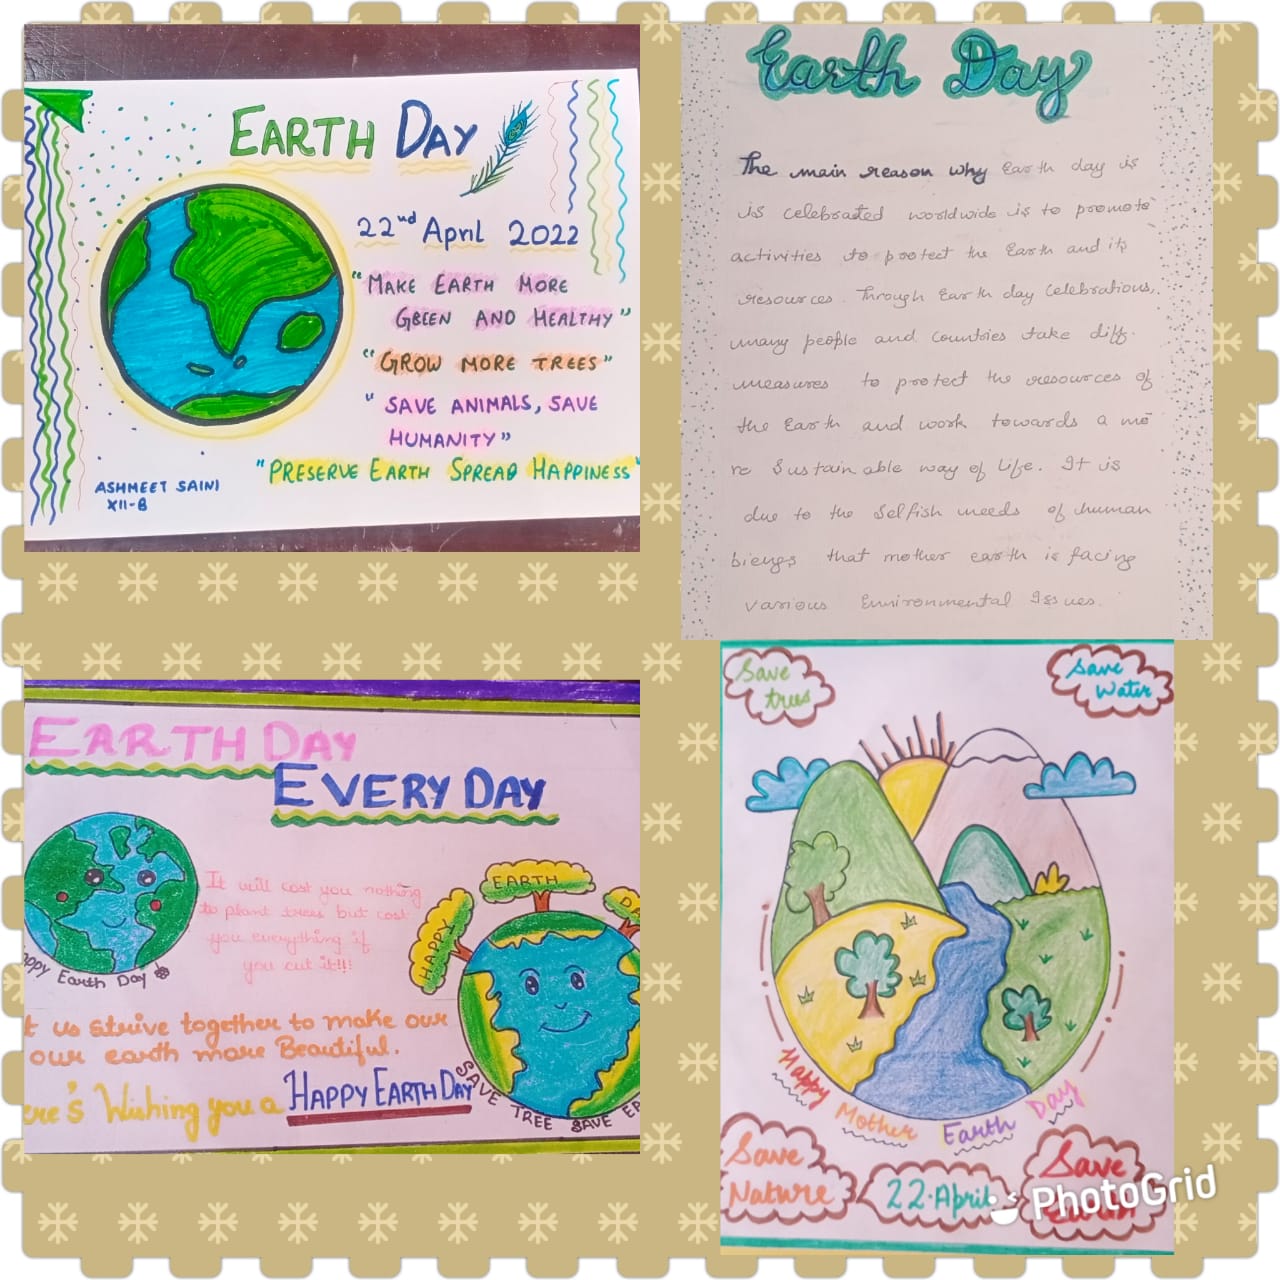 EARTH DAY
22nd April 2022
"MAKE EARTH MORE
GREEN AND HEALTHY"
"GROW MORE TREES"
"SAVE ANIMALS, SAVE
HUMANITY"
"PRESERVE EARTH SPREAD HAPPINESS"
ASHMEET SAINI
XII-B
Earth Day
The main reason why Earth day is
is celebrated worldwide is to promote
activities to protect the Earth and its
resources. Through Earth day Celebrations,
many people and countries take diff.
measures to protect the resources of
the Earth and work towards a mo
re Sustainable way of life. It is
due to the Selfish needs of human
biengs that mother earth is facing
various Environmental Issues.
EARTH DAY
EVERY DAY
It will cost you nothing
to plant trees but cost
you everything if
you cut it!!!
ppy Earth Day
HAPPY
EARTH
DA
t us strive together to make our
our earth more Beautiful.
ere's Wishing you a HAPPY EARTH DAY
SAVE TREE SAVE
Save
trees
Save
Water
Happy Mother Earth Day
Save
Nature
22-April
Save
PhotoGrid